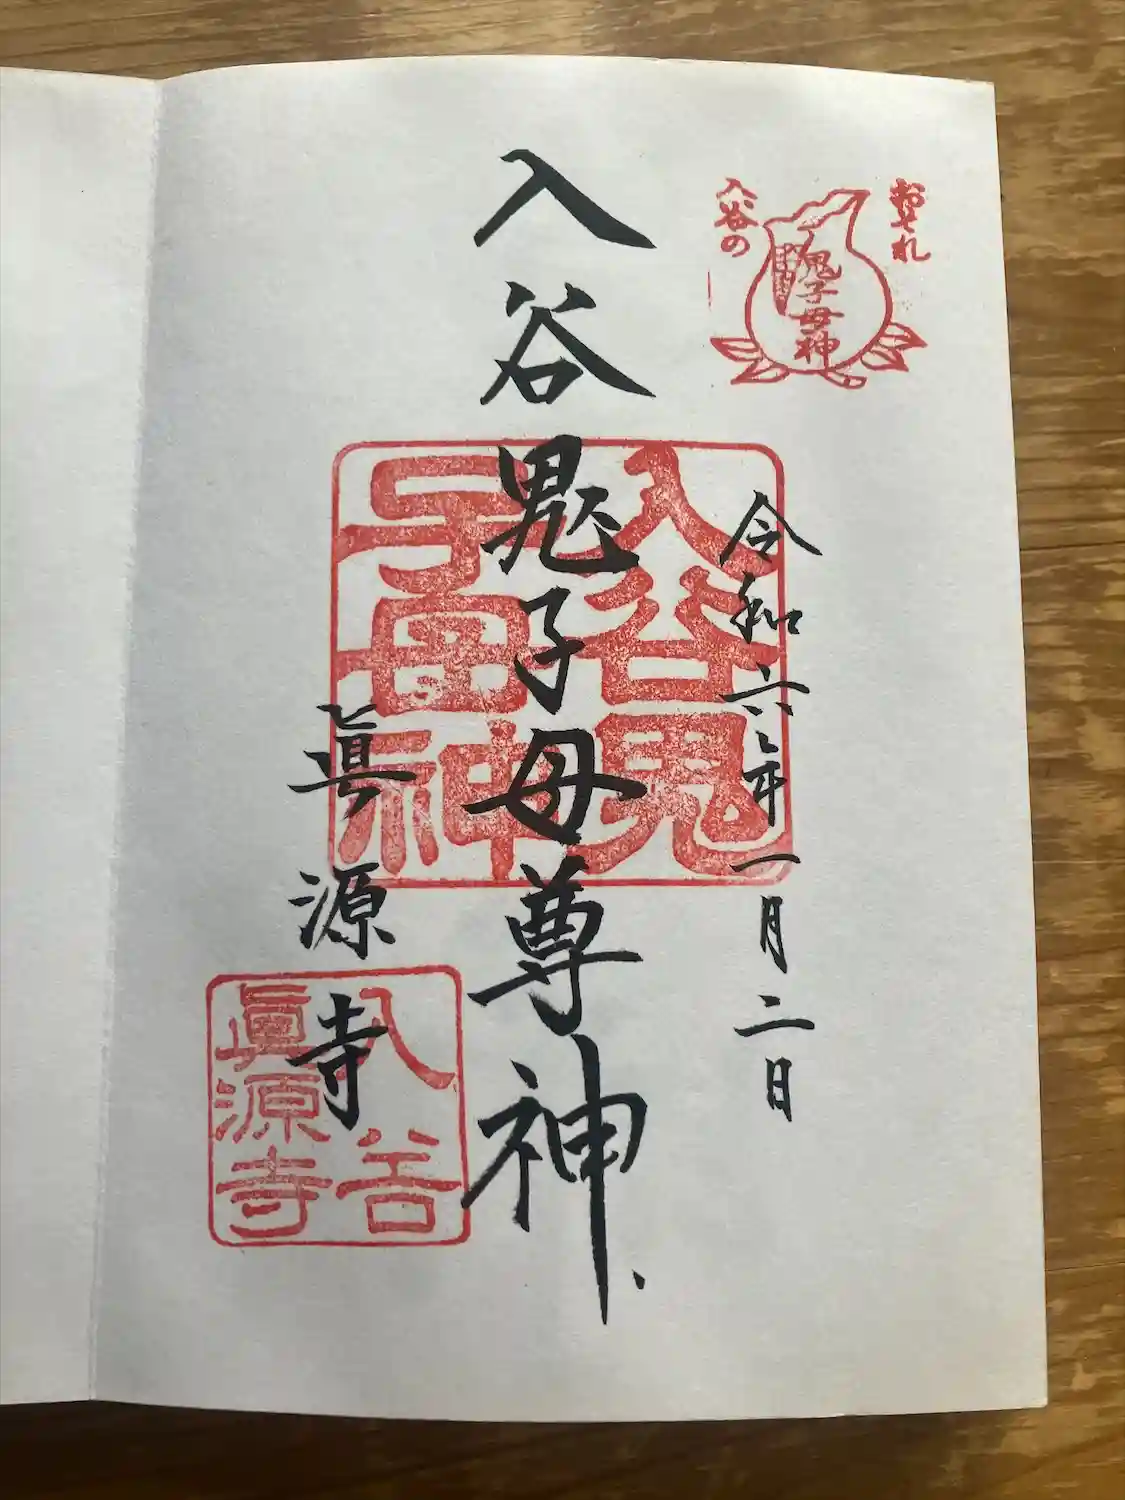 おそれ
入谷の
鬼子母神
令和六年一月二日
入谷鬼子母尊神
入谷鬼
子母神
眞源寺
入谷
眞源寺